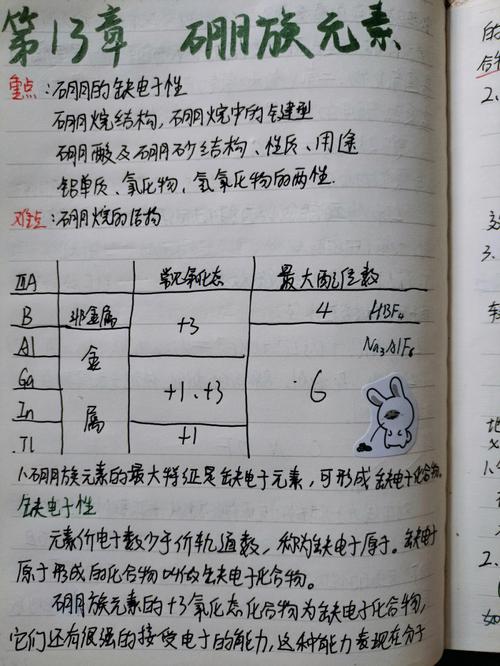 第13章 硼族元素
重点:硼的缺电子性
硼烷结构,硼烷中的键型
硼酸及硼砂结构、性质、用途
铝单质、氧化物,氢氧化物的两性.
难点:硼烷的结构
ⅢA 常见氧化态 最大配位数
B 非金属 +3 4 HBF₄
Al 金 Na₃AlF₆
Ga +1、+3 6
In 属
Tl +1
1.硼族元素的最大特征是缺电子元素,可形成缺电子化合物.
缺电子性
元素价电子数少于价轨道数,称为缺电子原子。缺电子
原子形成的化合物叫做缺电子化合物。
硼族元素的+3氧化态化合物为缺电子化合物,
它们还有很强的接受电子的能力,这种能力表现在分子
的
合
2.
3.
轻
地
1.
2.
如